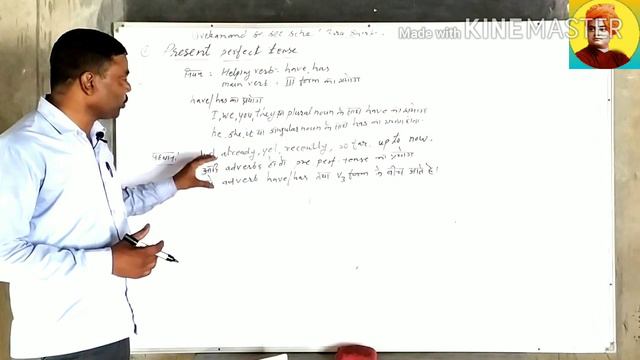 Made with KINEMASTER
Vivekanand
① Present perfect tense
नियम : Helping verb - have, has
main verb - III form का प्रयोग
have/has का प्रयोग
I, we, you, they या plural noun के साथ have का प्रयोग
he, she, it या singular noun के साथ has का
पहचान : already, yet, recently, so far, up to now.
आदि adverbs हो तो pre. perf. tense का प्रयोग
adverb have/has तथा V3 form के बीच आते हैं।